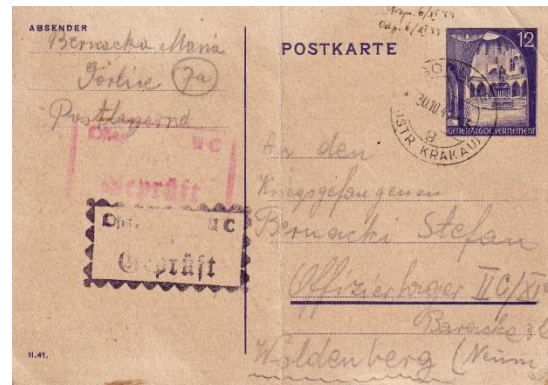 ABSENDER
Bernacka Maria
Görlice 7a
Postlagernd
II C
Geprüft
II C
Geprüft
II.41.
6/XI 44
Odp. 6/XI 44
POSTKARTE
12
GENERALGOUVERNEMENT
30.10.4
DISTR. KRAKAU
An den
Kriegsgefangenen
Bernacki Stefan
Offizierlager II C/XI
Baracke 3
Woldenberg (Neum